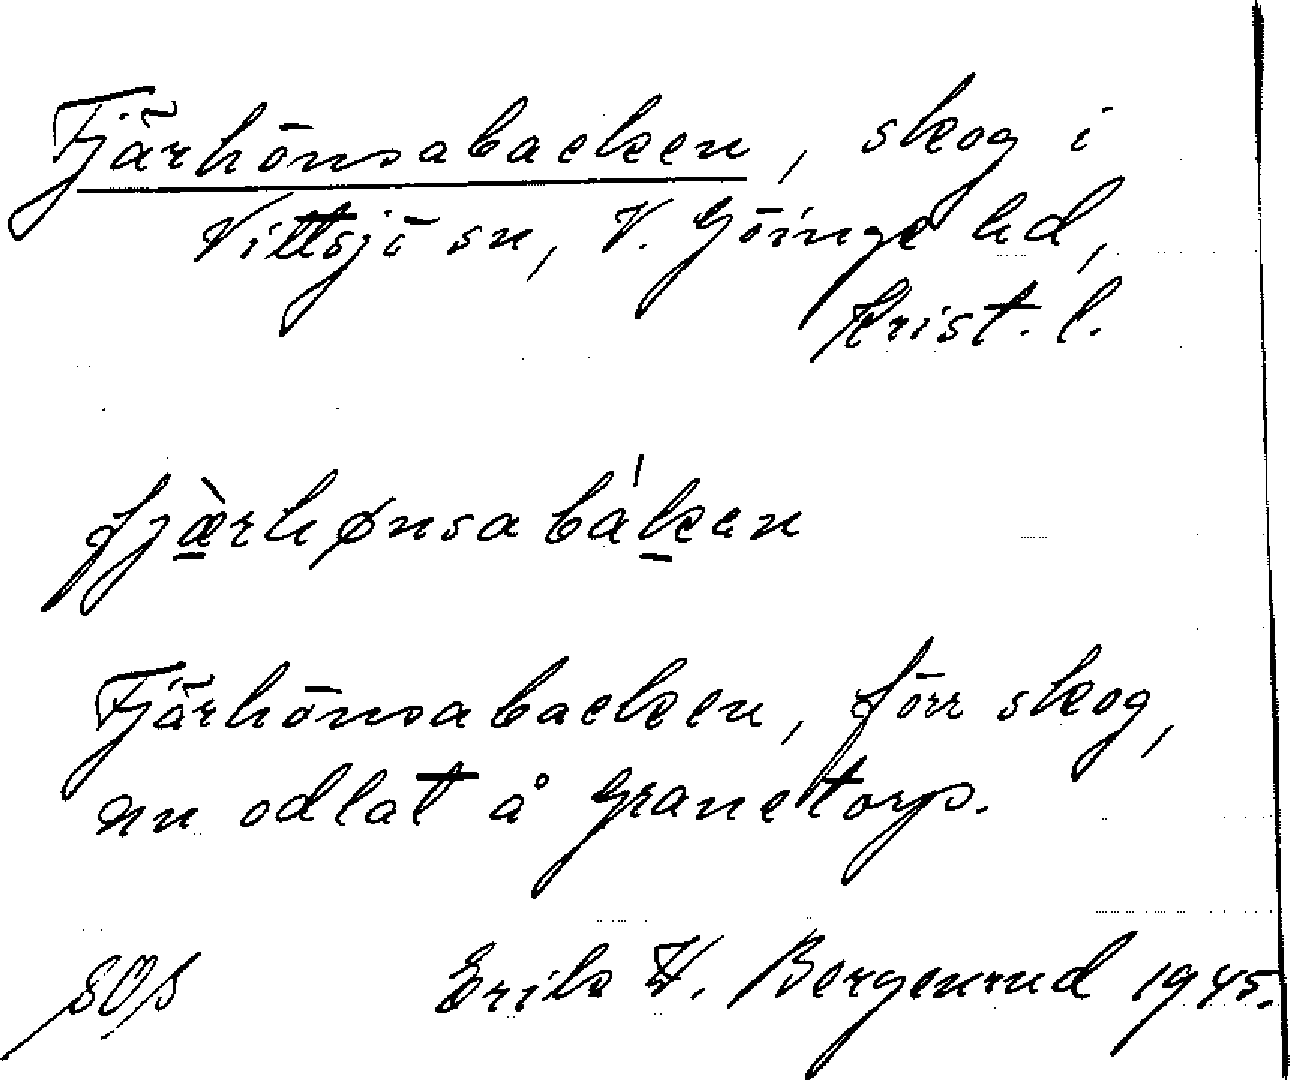 Fjärhönsabacken, skog i
Vittsjö sn, V. Göinge hd,
Krist. l.
fjæ̀rhønsabákan
Fjärhönsabacken, förr skog,
nu odlat å Granetorp.
SOS Erik W. Bergenrud 1945.